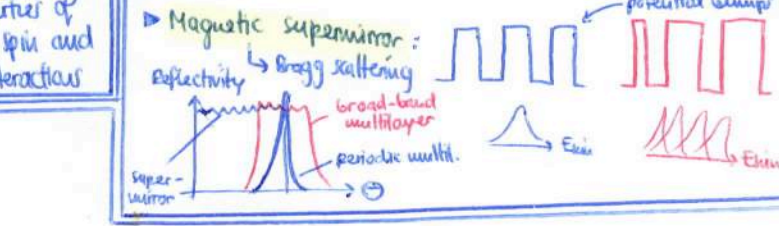 spin and
▶ Magnetic supermirror:
↳ Bragg scattering
Reflectivity
broad-band
multilayer
periodic multil.
super-
mirror
Θ
potential
Ekin
Ekin